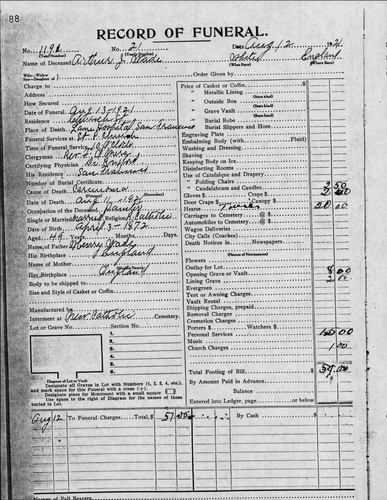 88
RECORD OF FUNERAL.
No. 1191
(Total Number)
No. 21
(Yearly Number)
Date Aug 12 1921
Name of Deceased Arthur J. Wade
White
(What Race)
England
(Where Born)
Order Given by
Charge to
Address
How Secured
Date of Funeral Aug 13-1921
Residence
Place of Death Lane Hospital San Francisco
Funeral Services at St. P. Church
Time of Funeral Service 10 o'clock
Clergyman Rev.
Certifying Physician
His Residence San Francisco
Number of Burial Certificate
Cause of Death Carcinoma
Date of Death Aug 11-1921
Occupation of the Deceased Painter
Single or Married Married Religion R. Catholic
Date of Birth April 3-1872
Aged 49 Years, Months, Days
Name of Father Henry Wade
His Birthplace England
Name of Mother
Her Birthplace England
Body to be shipped to
Size and Style of Casket or Coffin
Manufactured by
Interment at New Catholic Cemetery.
Lot or Grave No. Section No.
Diagram of Lot or Vault
Designate all Graves in Lot with Numbers (1, 2, 3, 4, etc.), and mark space for this Funeral with a cross (+).
Designate place for Monument with a small square
Use space to the right of Diagram for the names of those buried in Lot.
Price of Casket or Coffin
" Metallic Lining
(State kind)
" Outside Box
(State kind)
" Grave Vault
(State kind)
" Burial Robe
(State kind)
" Burial Slippers and Hose
Engraving Plate
Embalming Body (with Fluid)
Washing and Dressing
Shaving
Keeping Body on Ice
Disinfecting Rooms
Use of Catafalque and Drapery
" Folding Chairs
" Candelabrum and Candles 2 50
Gloves $ Canopy
Door Crape $
Hearse 20 00
Carriages to Cemetery @ $
Automobiles to Cemetery @ $
Wagon Deliveries
City Calls (Coaches)
Death Notices in Newspapers
Flowers
Outlay for Lot
Opening Grave or Vault 8 00
Lining Grave 2 00
Evergreen
Tent or Awning Charges
Vault Rental
Shipping Charges, prepaid
Removal Charges
Cremation Charges
Porters $ Watchers $
Personal Services
Music
Church Charges 1 00
Total Footing of Bill $
By Amount Paid in Advance
Balance
Entered into Ledger, page or below.
Aug 12 To Funeral Charges Total, $ By Cash $
Names of Pall Bearers